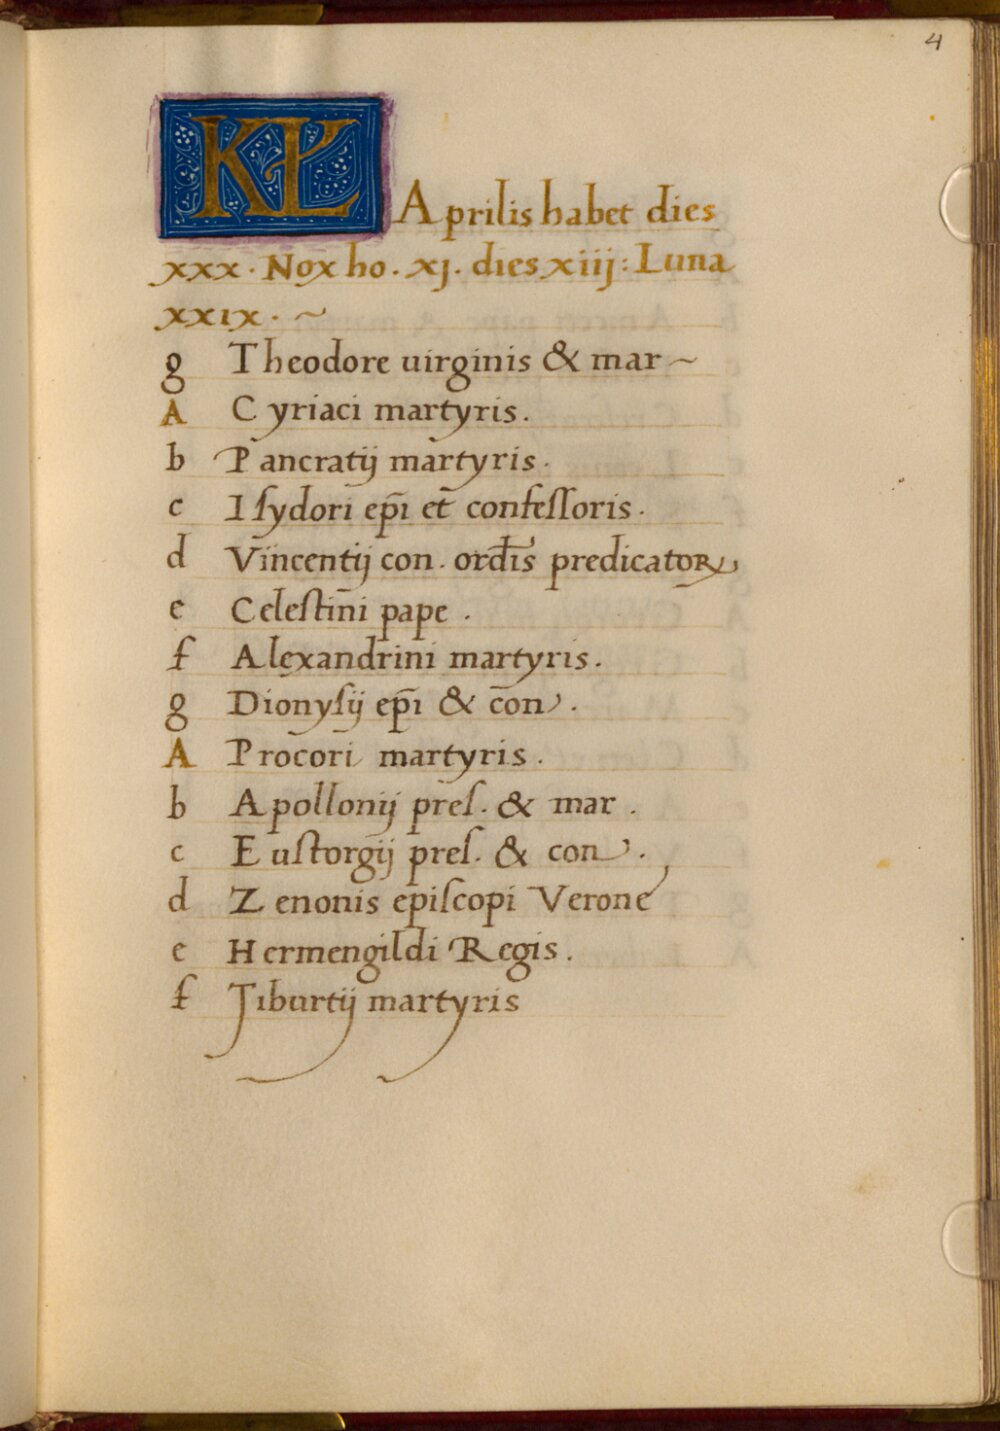 4
KL Aprilis habet dies
xxx · Nox ho · xj · dies xiij : Luna
xxix · ~
g Theodore uirginis & mar ~
A Cyriaci martyris .
b Pancratij martyris .
c Isydori ep̄i et̄ confessoris .
d Vincentij con . ord̄is predicatorꝝ
e Celestini pape .
f Alexandrini martyris .
g Dionysij ep̄i & c̄on .
A Procori martyris .
b Apollonij pres . & mar .
c Eustorgij pres . & con .
d Zenonis episcopi Verone
e Hermengildi Regis .
f Tiburtij martyris